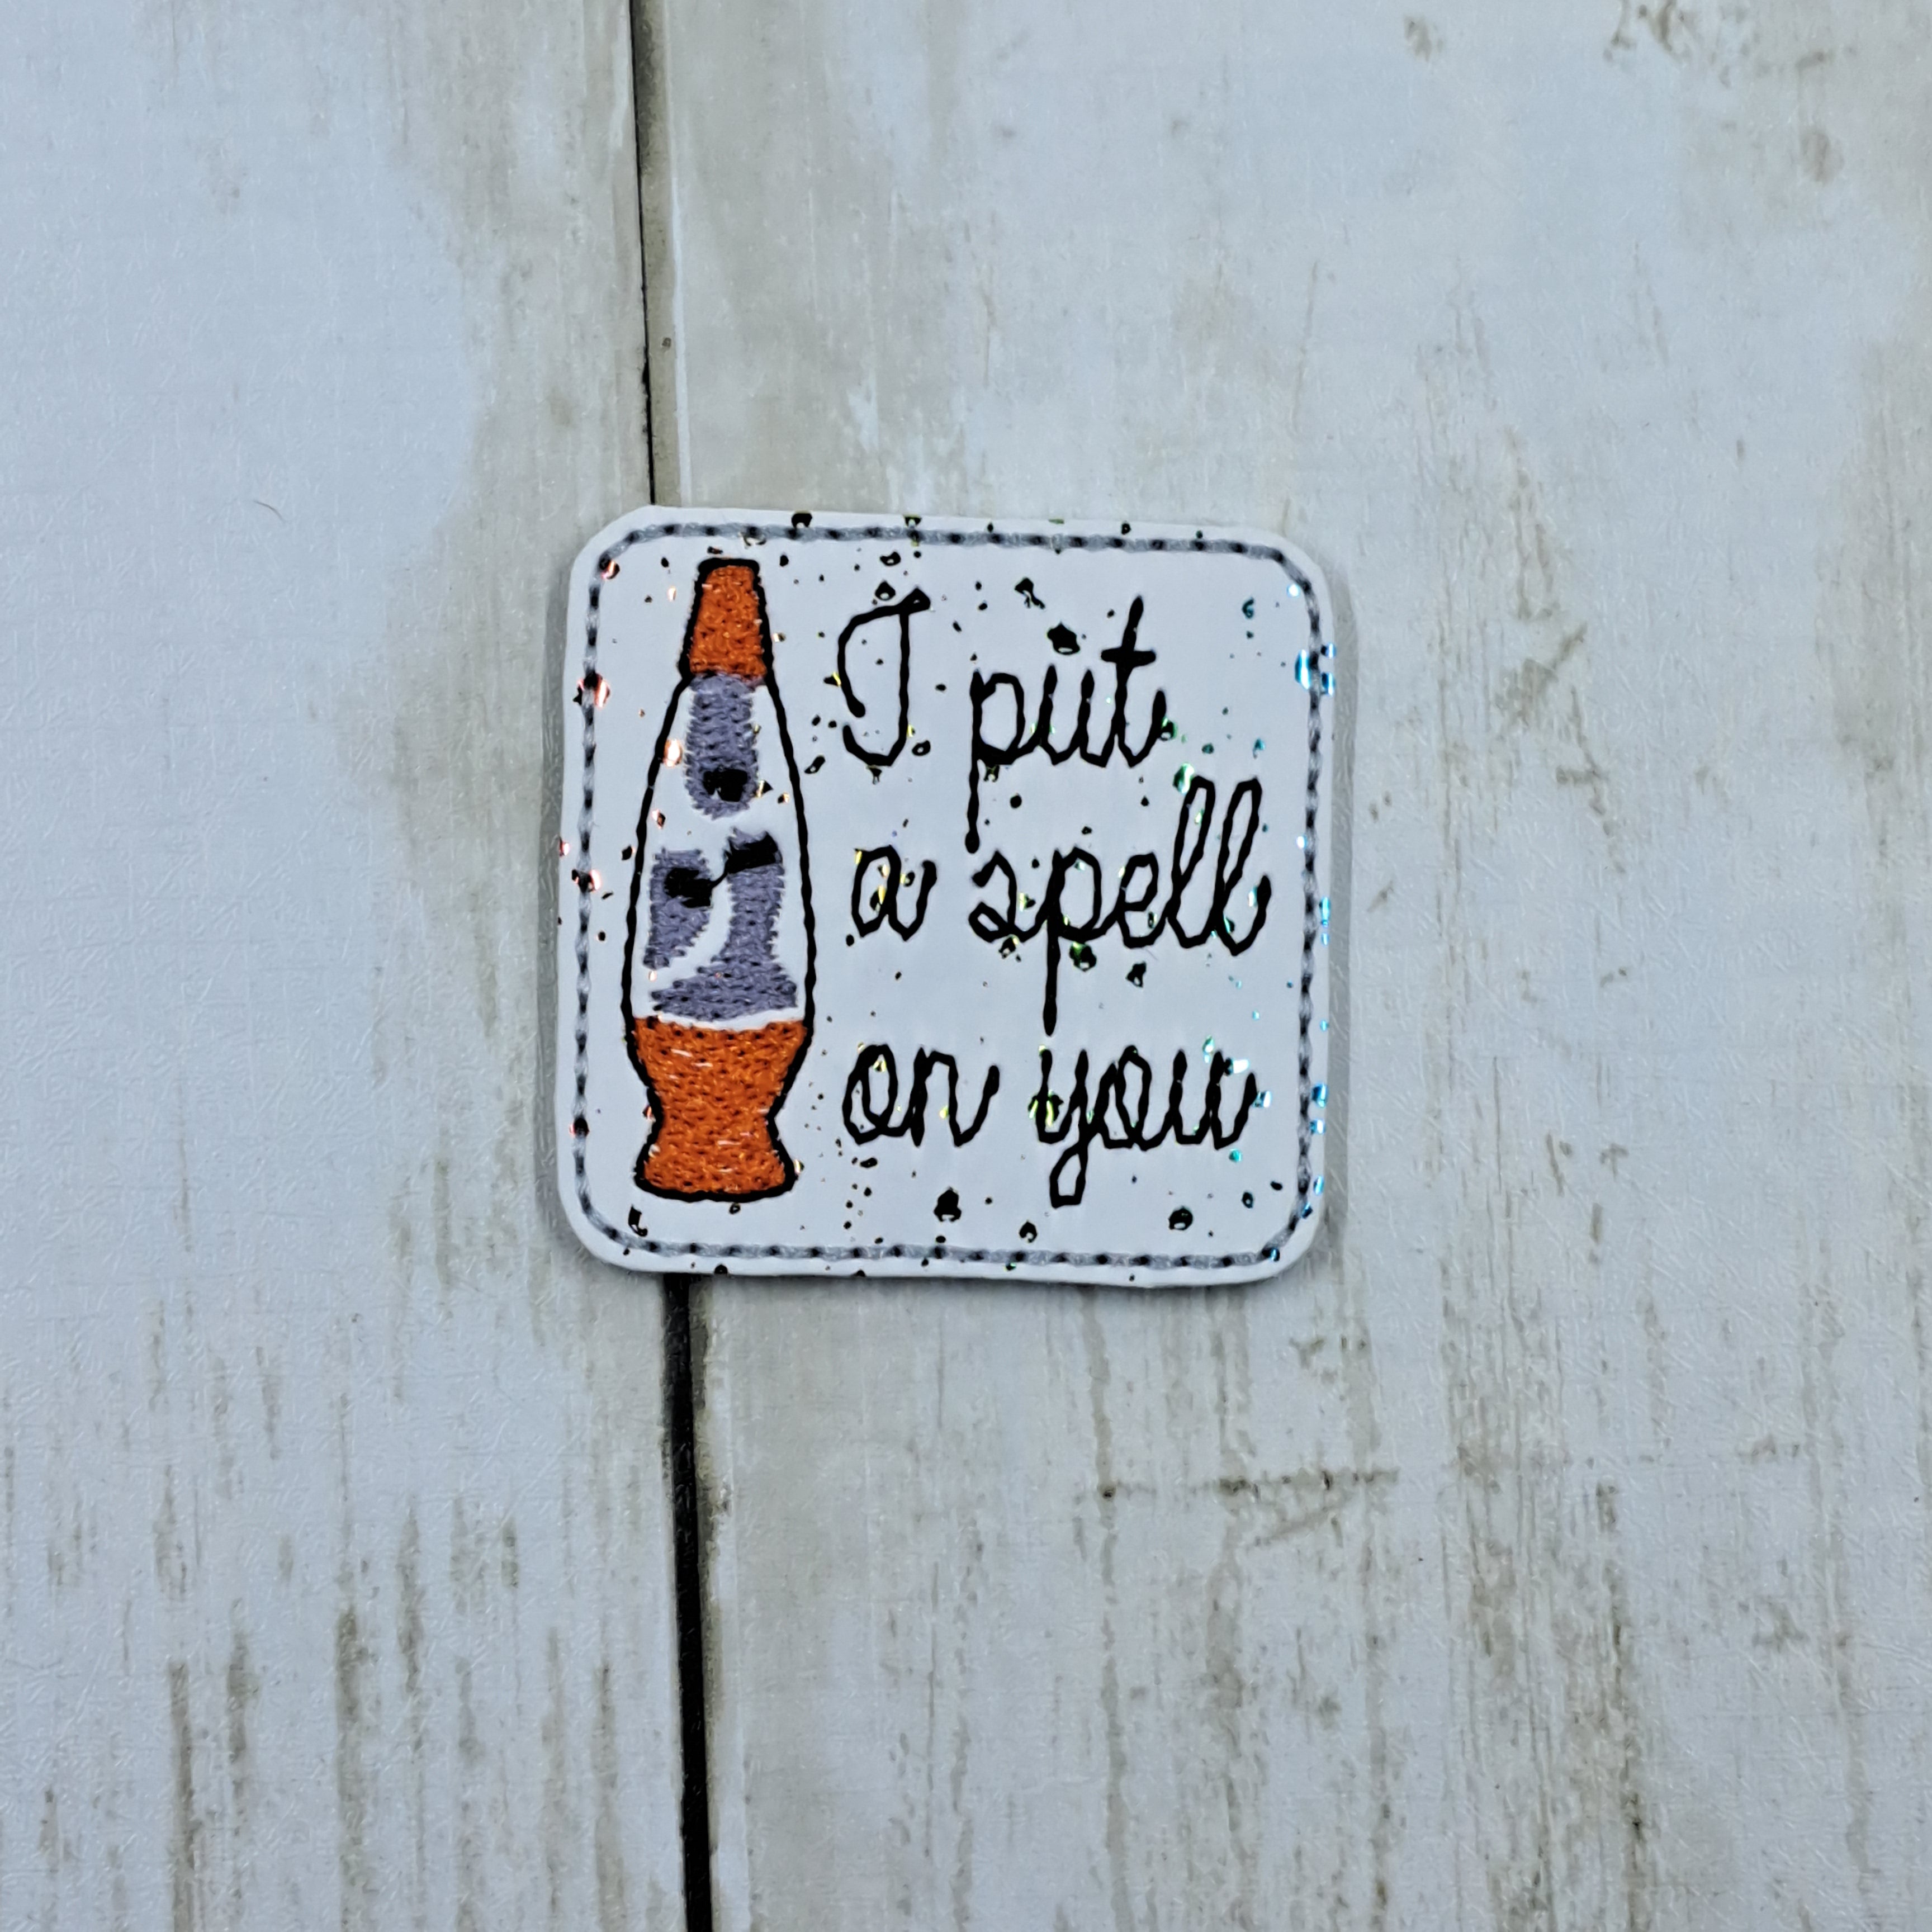 I put
a spell
on you